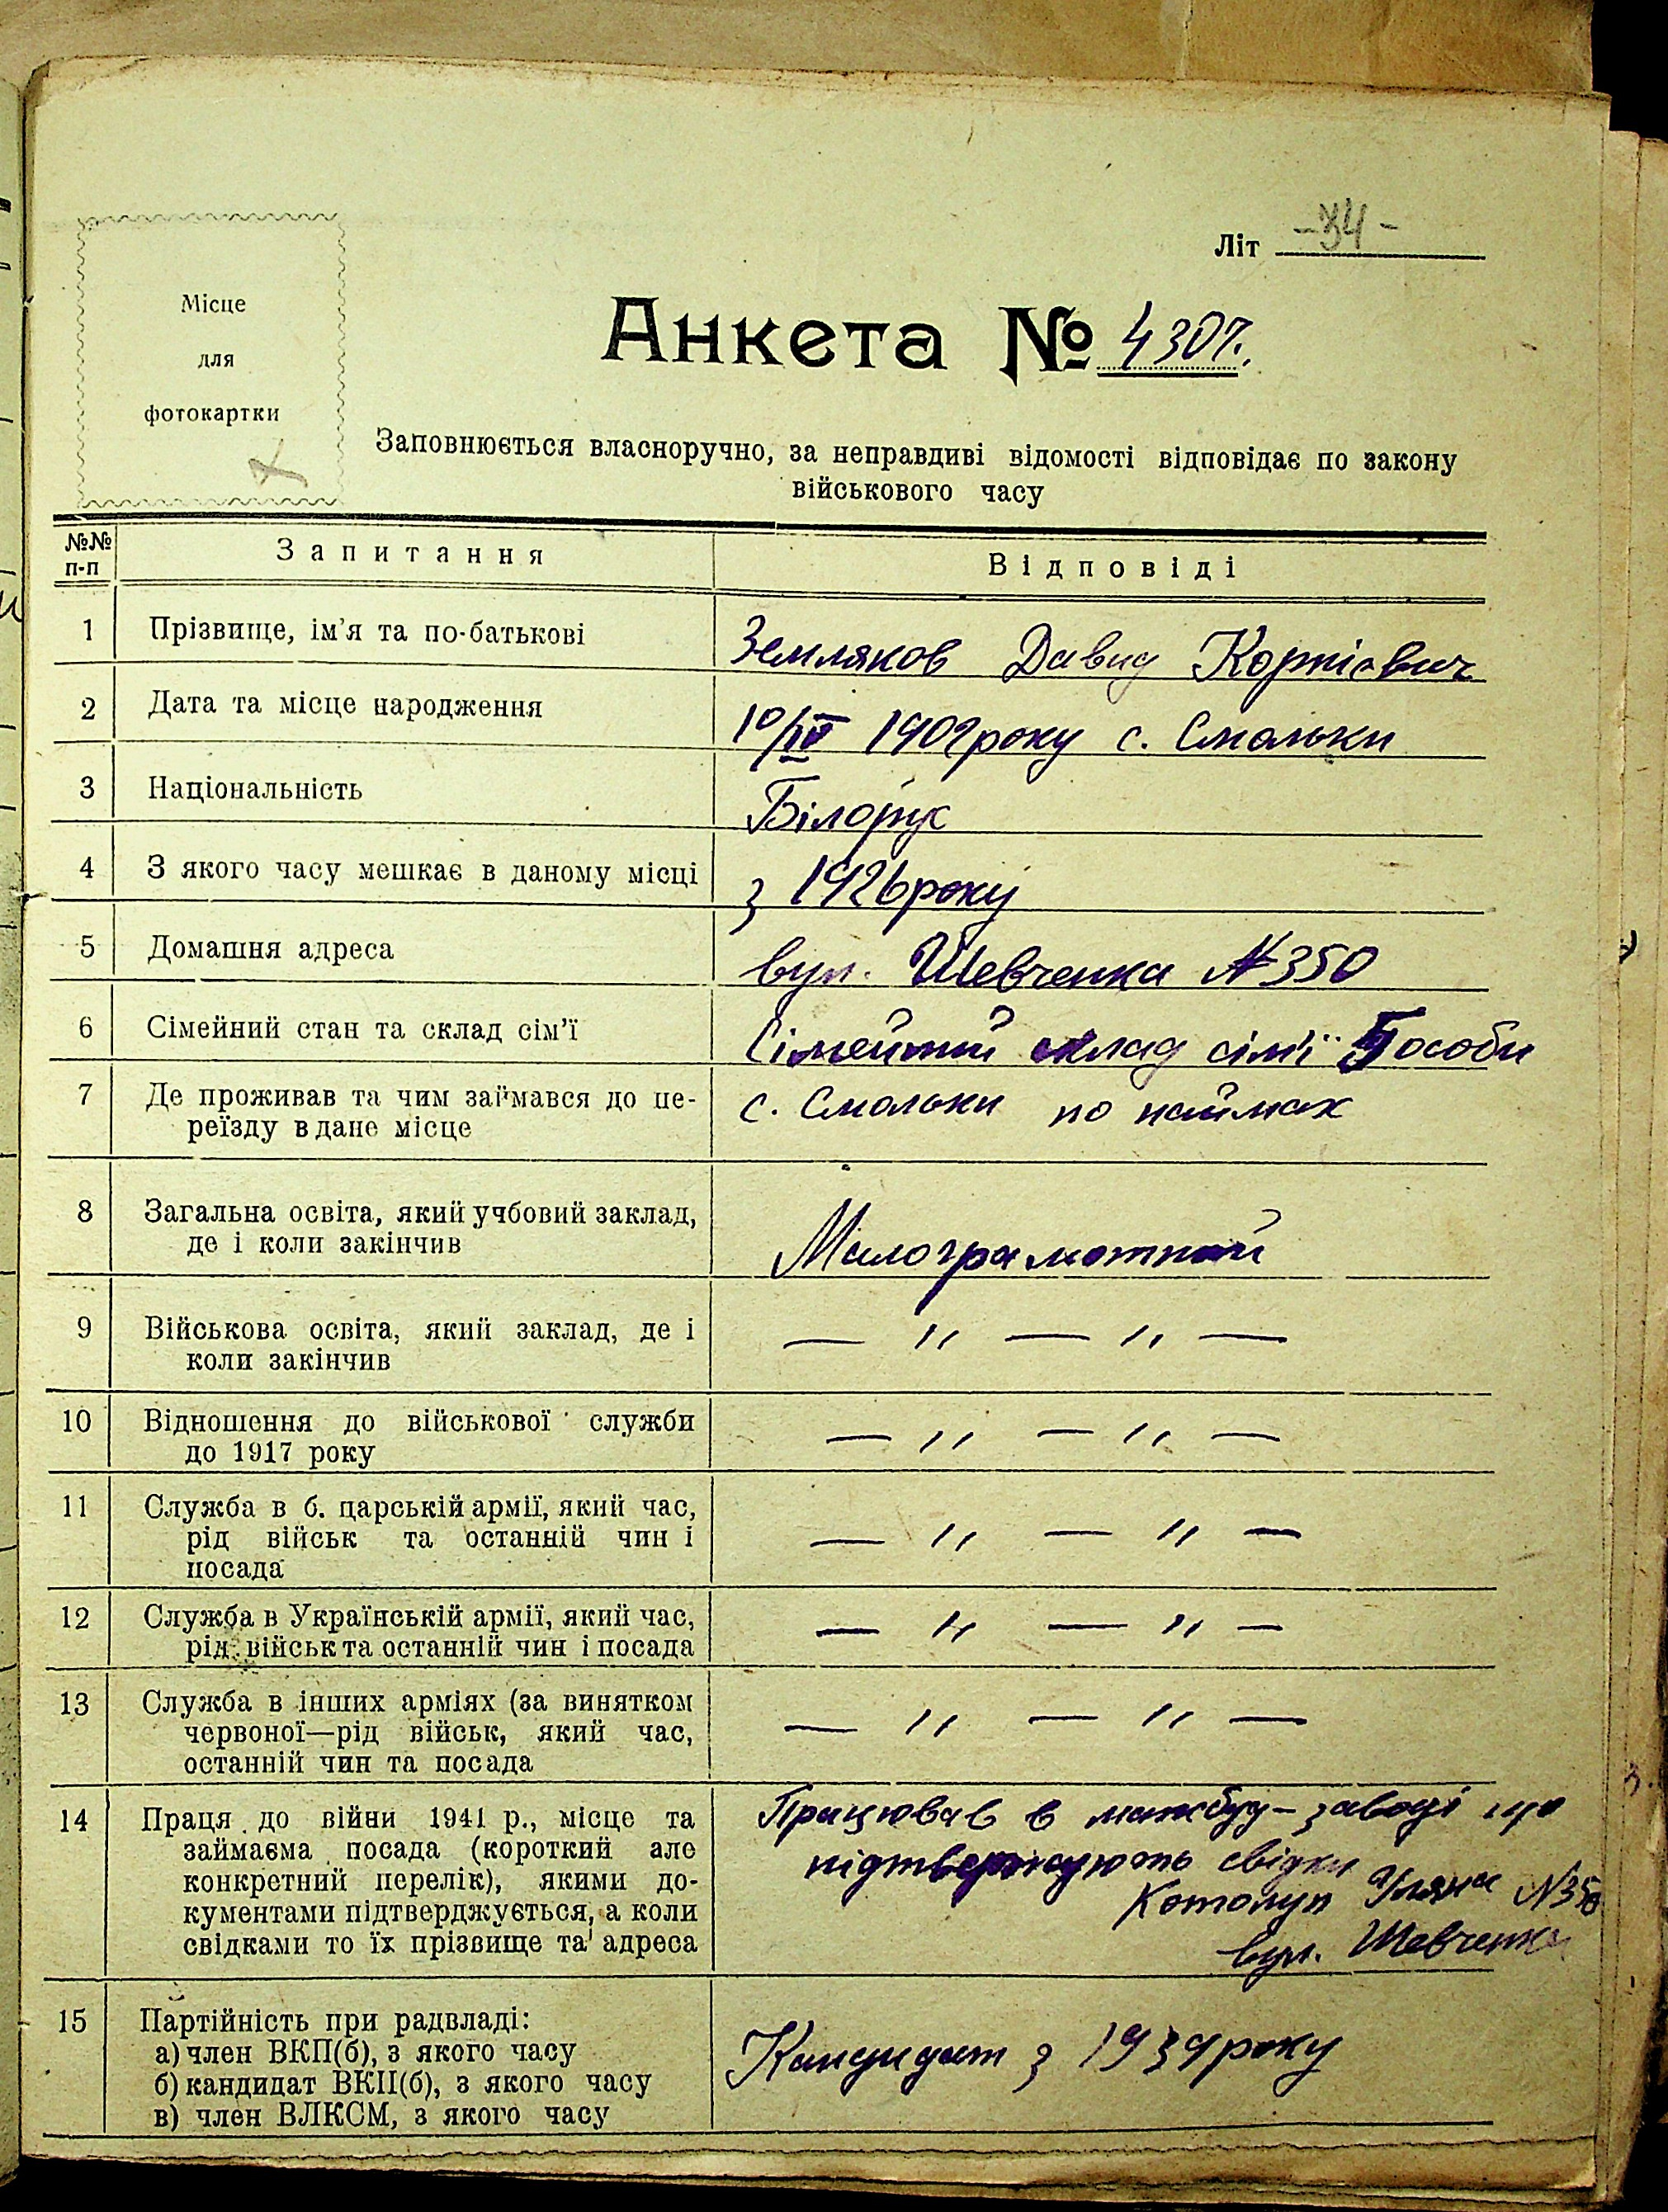 Літ -34-
Місце
для
фотокартки
Анкета № 4307.
Заповнюється власноручно, за неправдиві відомості відповідає по закону
військового часу
№№ п-п Запитання Відповіді
1 Прізвище, ім'я та по-батькові Земляков Давид Корнієвич
2 Дата та місце народження 10/IV 1909 року с. Смольки
3 Національність Білорус
4 З якого часу мешкає в даному місці з 1926 року
5 Домашня адреса вул. Шевченка №350
6 Сімейний стан та склад сім'ї Сімейний склад сім'ї 5 особи
7 Де проживав та чим займався до пе- с. Смольки по наймах
реїзду в дане місце
8 Загальна освіта, який учбовий заклад,
де і коли закінчив Малограмотний
9 Військова освіта, який заклад, де і — „ — „ —
коли закінчив
10 Відношення до військової служби — „ — „ —
до 1917 року
11 Служба в б. царській армії, який час,
рід військ та останній чин і — „ — „ —
посада
12 Служба в Українській армії, який час, — „ — „ —
рід військ та останній чин і посада
13 Служба в інших арміях (за винятком — „ — „ —
червоної—рід військ, який час,
останній чин та посада
14 Праця до війни 1941 р., місце та Працював в машбуд-заводі що
займаєма посада (короткий але підтвержують свідки
конкретний перелік), якими до- Котолуп Уляна №350
кументами підтверджується, а коли вул. Шевченка
свідками то їх прізвище та адреса
15 Партійність при радвладі:
а) член ВКП(б), з якого часу Кандидат з 1939 року
б) кандидат ВКП(б), з якого часу
в) член ВЛКСМ, з якого часу